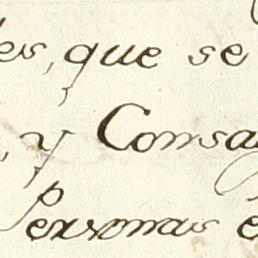 es, que se
, y Consa
Personas e